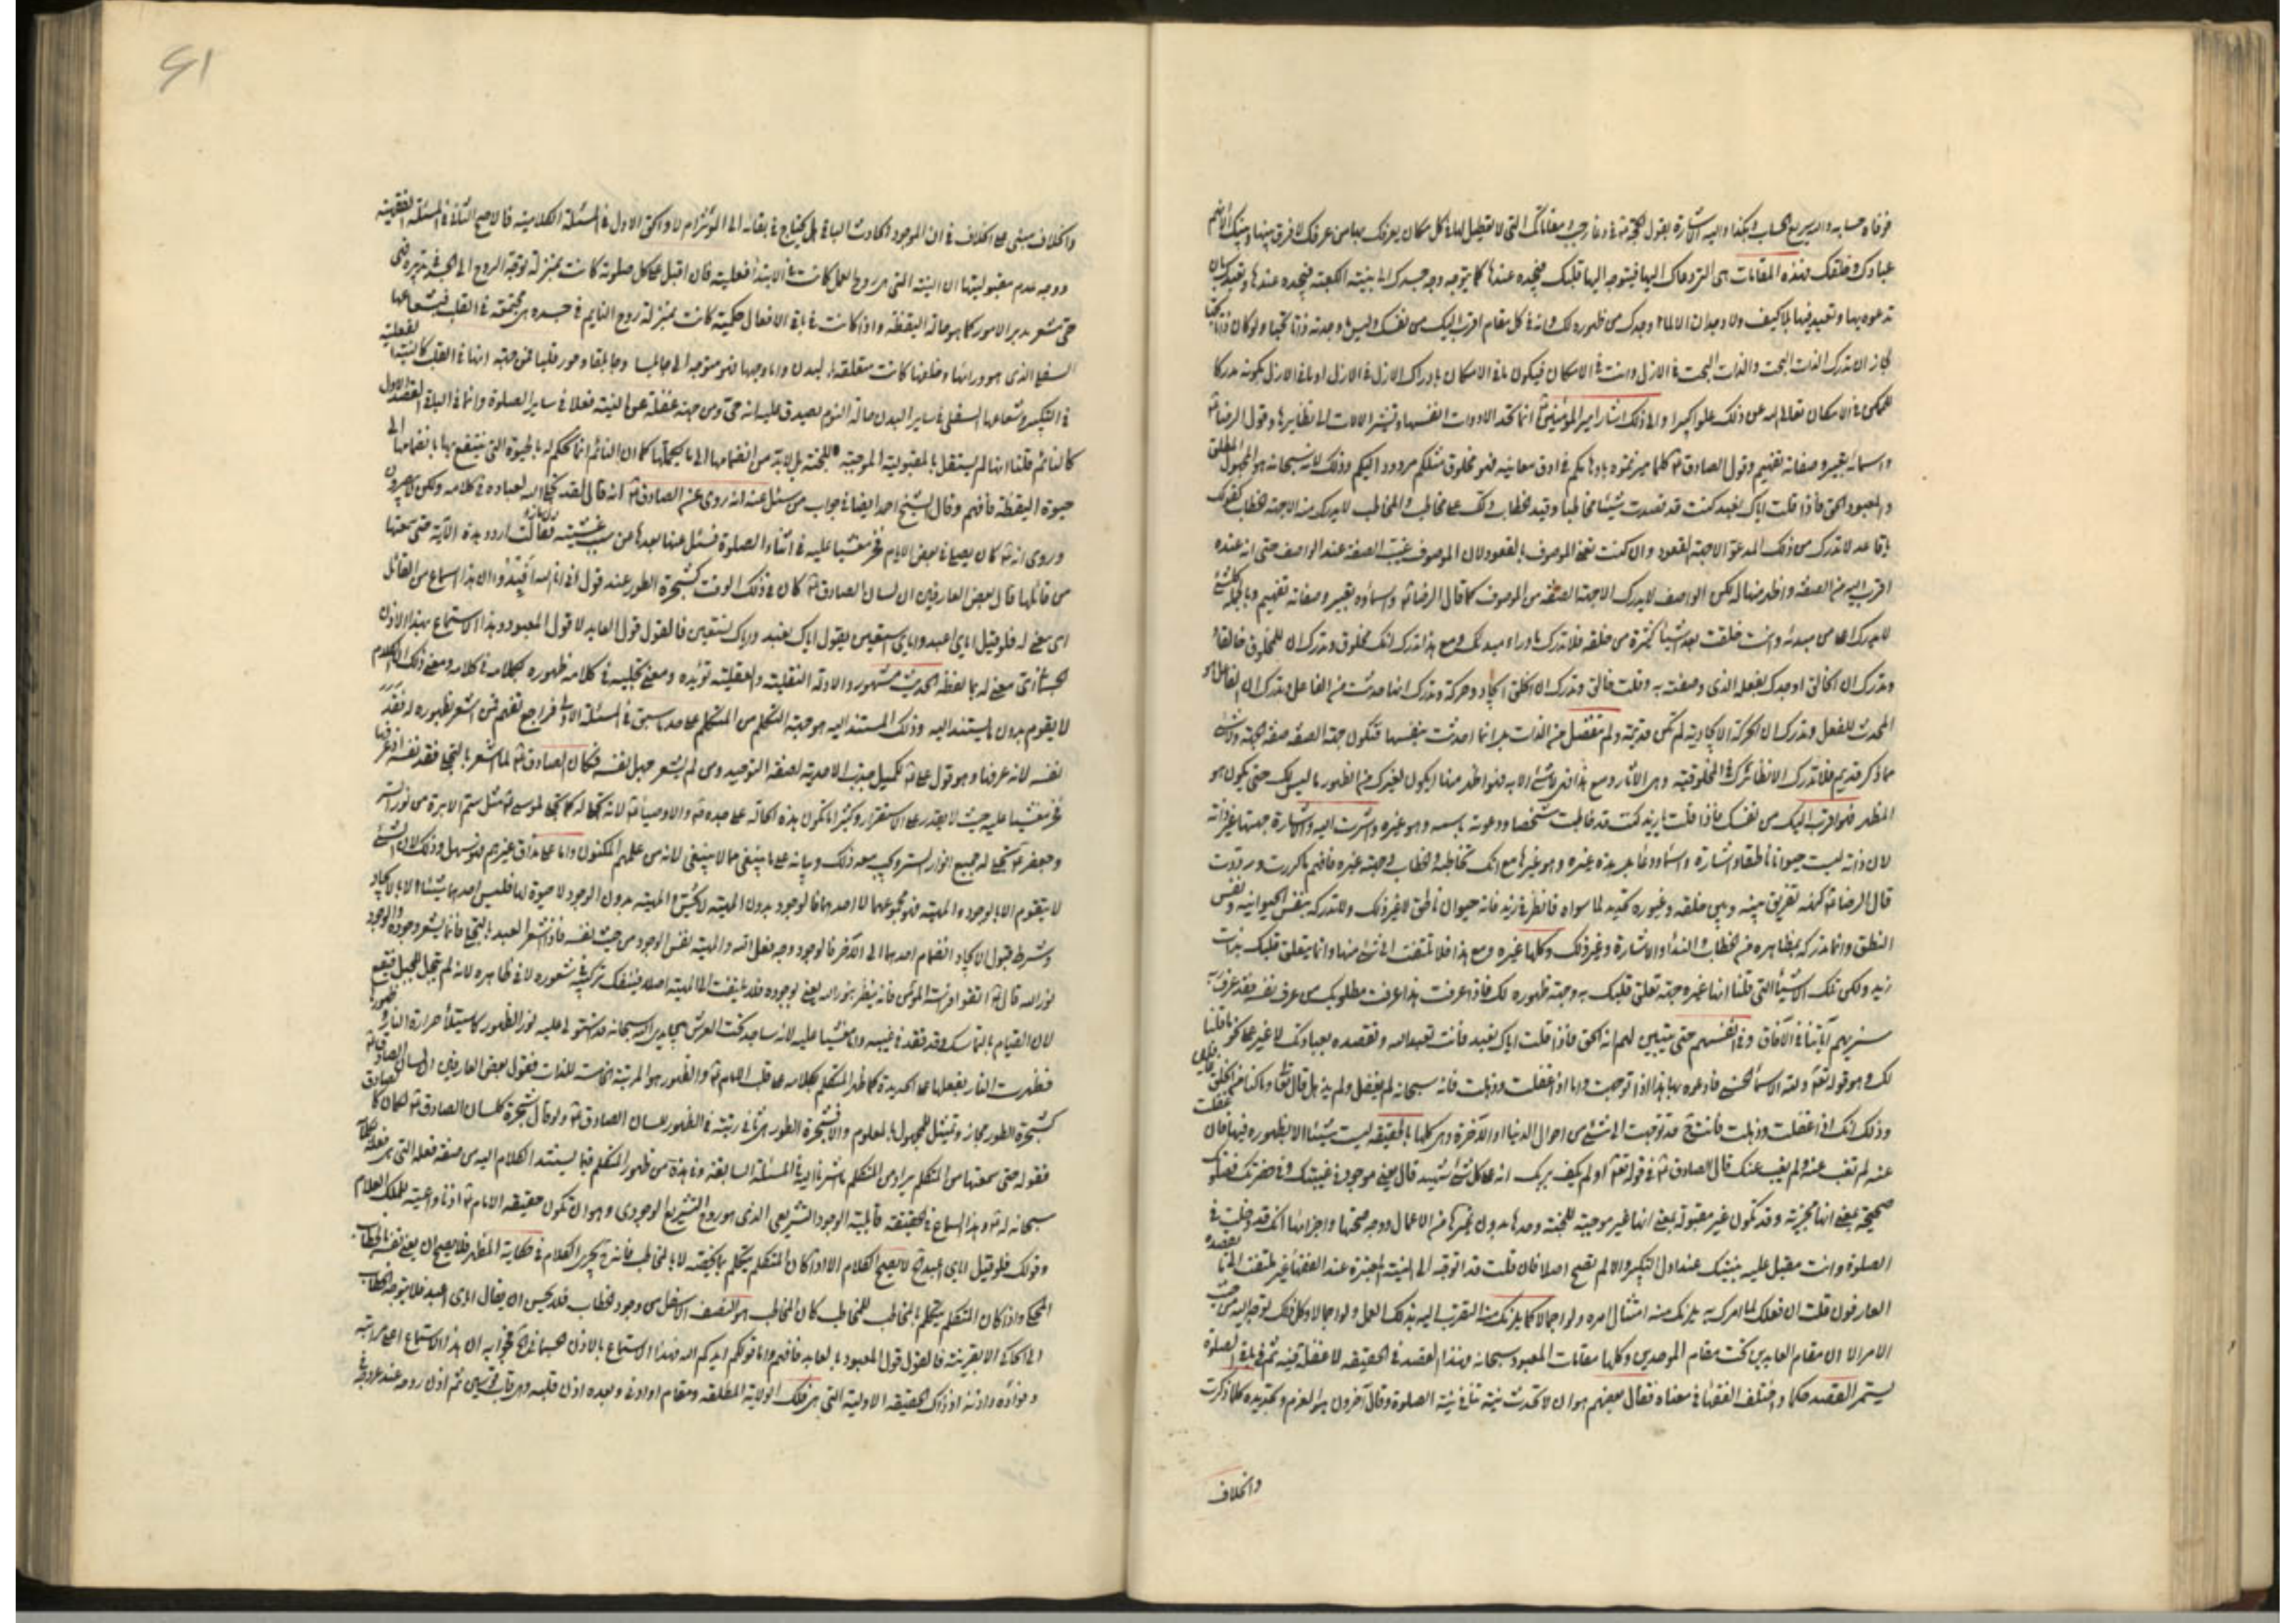 فوفاه حسابه والله سريع الحساب وهكذا واليه الاشارة بقول الحجة ع في دعاء رجب ومقاماتك التي لا تعطيل لها في كل مكان يعرفك بها من عرفك لا فرق بينها وبينك الا انهم
عبادك وخلقك فهذه المقامات هي التي دعاك اليها فيتوجه اليها قلبك فتجده عندها كما يتوجه وجه جسدك الى بنية الكعبة فتجده عندها وتعبده بان
تدعوه بها وتعبده فيها بلا كيف ولا وجدان الا لما اوجدك من ظهوره لك وانه في كل مقام اقرب اليك من نفسك وليس وجدته ذاتا بحتا ولو كان ذاتا بحتا
لجاز ان تدرك الذات البحت والذات البحت في الازل وانت في الامكان فيكون ما في الامكان يدرك الازل في الازل او ما في الازل بكونه مدركا
للممكن في الامكان تعالى الله عن ذلك علوا كبيرا والى ذلك اشار امير المؤمنين ع انما تحد الادوات انفسها وتشير الالات الى نظايرها وقول الرضا ع
واسمائه تعبير وصفاته تفهيم وقول الصادق ع كلما ميزتموه باوهامكم في ادق معانيه فهو مخلوق مثلكم مردود اليكم وذلك لانه سبحانه هو المجهول المطلق
والمعبود الحق فاذا قلت اياك نعبد كنت قد قصدت شيئا مخاطبا وقيد الخطاب لك على مخاطب والمخاطب لا يدرك منه الا جهة الخطاب كقولك
يا قاعد لا تدرك من ذلك المدعو الا جهة القعود وان كنت تعني الموصوف بالقعود لان الموصوف غيب الصفة عند الواصف حتى انه عنده
اقرب اليه من الصفة واظهر منها له لكن الواصف لا يدرك الا جهة الصفة من الموصوف كما قال الرضا ع واسماؤه تعبير وصفاته تفهيم وبالجملة كل شئ
لا يدرك اعلى من مبدئه وانت خلقت بعد اشياء كثيرة من خلقه فلا تدرك ما وراء مبدئك ومع هذا تدرك انك مخلوق وتدرك ان للمخلوق خالقا
وتدرك ان الخالق اوجدك بفعله الذي وصفته به وقلت خالق وتدرك ان الخلق ايجاد وحركة وتدرك انها حدثت من الفاعل وتدرك ان الفاعل هو
المحدث للفعل وتدرك ان الحركة الايجادية لم تكن قديمة ولم تنفصل من الذات بل انما احدثت بنفسها فتكون جهة الصفة صفة الجهة
مما ذكر قديم فلا تدرك الا نظائرك في المخلوقية وهي الاثار ومع هذا في لا شئ الا به فهو اظهر منها ايكون لغيرك من الظهور ما ليس لك حتى يكون هو
المظهر فهو اقرب اليك من نفسك فاذا قلت يا زيد كنت قد خاطبت شخصا ودعوته باسمه وهو غيره واشرت اليه والاشارة جهتها غير ذاته
لان ذاته ليست حيوانا ناطقا واشارة واسما ودعاء بل هذه غيره وهو غيرها مع انك تخاطبه والخطاب وجهته غيره فافهم ما كررت ورددت
قال الرضا ع كنهه تفريق بينه وبين خلقه وغيوره تحديد لما سواه فانظر في زيد فانه حيوان ناطق لا غير ذلك ولا تدركه بنفس الحيوانية ونفس
النطق وانما تدركه بمظاهره من الخطاب والنداء والاشارة وغير ذلك وكلها غيره ومع هذا فلا تلتفت الى شئ منها وانما يتعلق قلبك بذات
زيد ولكن تلك الاشياء التي قلنا انها غيره جهة تعلق قلبك به وجهة ظهوره لك فاذا عرفت هذا عرفت مطلوبك من عرف نفسه فقد عرف ربه
سنريهم آياتنا في الآفاق وفي انفسهم حتى يتبين لهم انه الحق فاذا قلت اياك نعبد فانت تعبد الله وتقصده بعبادتك لا غير على نحو ما قلنا
لك وهو قوله تعالى ولله الاسماء الحسنى فادعوه بها هذا اذا توجهت واما اذا غفلت وذهلت فانه سبحانه لم يغفل ولم يذهل قال تعالى وما كنا عن الخلق غافلين
وذلك انك اذا غفلت وذهلت فانت ح قد توجهت الى شئ من احوال الدنيا او الآخرة وهي كلها بالحقيقة ليست شيئا الا بظهوره فيها فان غفلت
عنه لم تغب عنه ولم يغب عنك قال الصادق ع في قوله تعالى او لم يكف بربك انه على كل شئ شهيد قال يعني موجود في غيبتك وفي حضرتك فصلوتك
صحيحة بمعنى انها مجزية وقد تكون غير مقبولة بمعنى انها غير موجبة للجنة وحدها بدون غيرها من الاعمال ووجه صحتها واجزائها انك قد دخلت في
الصلوة وانت مقبل عليه بنيتك عند اول التكبير والا لم تصح اصلا فان قلت قد اتوجه الى النية المعتبرة عند الفقهاء غير ملتفت الى ما يقصده
العارفون قلت ان فعلك لما امرك به يلزمك منه امتثال امره ولو اجمالا كما يلزمك منه التقرب اليه بذلك العمل ولو اجمالا وكل ذلك توجه اليه من حيث
الامر الا ان مقام العابدين تحت مقام الموحدين وكلها مقامات المعبود سبحانه وهذا القصد في الحقيقة لا غفلة فيه ثم في باقي الصلوة
يستمر القصد حكما واختلف الفقهاء في معناه فقال بعضهم هو ان لا تحدث نية تنافي نية الصلوة وقال آخرون هو العزم وتجديده كلما ذكرت
والخلاف
٤١
والخلاف مبني على الخلاف في ان الموجود الحادث الباقي هل يحتاج في بقائه الى المؤثر ام لا والحق الاول في المسئلة الكلامية فالاصح الثاني في المسئلة الفقهية
ووجه عدم مقبوليتها ان النية التي هي روح العمل كانت في الابتداء فعلية فان اقبل على كل صلوته كانت بمنزلة توجه الروح الى الجسد في تدبيره فهي
حي تشعر بدبر الامور كما هو حالة اليقظة واذا كانت في باقي الافعال حكمية كانت بمنزلة روح النايم في جسده هي مجتمعة في القلب فشعاعها
السفلي الذي هو ورائها وخلفها كانت متعلقة بالبدن واما وجهها فهو متوجه الى
في التكبير وشعاعها السفلي في ساير البدن حالة النوم يصدق عليه انه حي ومن جهة غفلة عن النية فعلا في ساير الصلوة وانما في البال القصد الاول
كالنائم قلنا انها لم يستقل بالمقبولية الموجبة للجنة بل لا بد من انضمامها الى ما يكملها كما ان النائم انما تحكم له بالحيوة التي ينتفع بها بانضمامها الى
حيوة اليقظة فافهم وقال الشيخ احمد ايضا في جواب من سئل عنه انه روى عن الصادق ع انه قال لقد تجلى الله لعباده في كلامه ولكن لا يبصرون
وروى انه ع كان يصلي في بعض الايام فخر مغشيا عليه في اثناء الصلوة فسئل عنها بعدها عن سبب غشيته فقال ما زلت اردد هذه الآية حتى سمعتها
من قائلها قال بعض العارفين ان لسان الصادق ع كان في ذلك الوقت كشجرة الطور عند قول اني انا الله افيدوا ان هذا السماع من القائل
اي معنى له فلو قيل اياي اعبد واياي استعين يقول اياك نعبد واياك نستعين فالقول قول العابد لا قول المعبود وهذا الاستماع بهذا الاذن
الجسماني اي معنى له بما لفظه الحديث مشهور والادلة النقلية والعقلية تؤيده ومعنى تجليه في كلامه ظهوره بكلامه في كلامه ومعنى ذلك ان الكلام
لا يقوم بدون ما يستند اليه وذلك المستند اليه هو جهة التكلم من المتكلم على حد ما سبق في المسئلة الاولى فراجع تفهم فمن اشعر بظهوره له فقد
نفسه لانه عرفها وهو قول علي ع لكميل جذب الاحدية لصفة التوحيد ومن لم يشعر جهل نفسه فكان الصادق ع لما اشعر بالتجلي فقد نفسه اذ عرفها
فخر مغشيا عليه حيث لا يقدر على الاستقرار وكثيرا ما تكون هذه الحالة على جده ص والاوصياء ع لانه تجلى له كما تجلى لموسى ع مثل سم الابرة من نور الستر
وجعفر ع تجلى له جميع انوار الستر
لا يتقوم الا بالوجود والمهية فهو مجموعهما لا احدهما فالوجود بدون المهية لا يحس والمهية بدون الوجود لا حيوة لها فليس احدهما شيئا الا بالايجاد
وشرط قبول الايجاد انضمام احدهما الى الآخر فالوجود وجه فعل الله والمهية نفس الوجود من حيث نفسه فاذا اشعر العبد بالتجلي فانما يشعر وجوده والوجود
نور الله قال ع اتقوا فراسة المؤمن فانه ينظر بنور الله يعني بوجوده فلا يلتفت الى المهية اصلا فينفك تركيبه في شعوره لا في ظاهره لانه لم تجل للجبل فيقع
لان القيام بالتماسك وقد فقد في غيبه وانما غشيا عليه لانه ساجد تحت العرش بين يدي الله سبحانه قد استولى عليه نور الظهور كاستيلاء حرارة النار
فظهرت النار بفعلها على الحديدة كما ظهر المتكلم بكلامه على قلب الامام ع والظهور هو المرتبة الخامسة للذات فقول بعض العارفين ان لسان الصادق ع
كشجرة الطور مجاز وتمثيل للمجهول بالمعلوم والا فشجرة الطور هي ثاني رتبة في الظهور للسان الصادق ع ولو قال شجرة كلسان الصادق ع لكان صادقا
فقوله حتى سمعتها من المتكلم يراد من المتكلم ما اشرنا اليه في المسئلة السابقة وفي هذه من ظهور المتكلم فيما يستند الكلام اليه من صفة فعله التي هي فعله
سبحانه له ع وهذا السماع في الحقيقة قابلية الوجود التشريعي الذي هو روح التشريع الوجودي وهو ان تكون حقيقة الامام ع اذنا واعية لذلك الكلام
وقولك فلو قيل اياي اعبد الخ لا يصح الكلام الا اذا كان المتكلم يتكلم بالحقيقة لا بالمخاطب فانه ح يجري الكلام في حكاية المظهر فلا يصح ان يعني نفسه بالخطاب
المحكي واذا كان المتكلم يتكلم بالمخاطب للمخاطب كان المخاطب هو النصف الاسفل من وجود الخطاب فلا يحسن ان يقال اياي اعبد فلا يتوجه الخطاب
الى الحاكي الا بقرينة فالقول قول المعبود بالعابد فافهم واما قولكم ايدكم الله فهذا الاستماع بالاذن الجسماني الخ فجوابه ان هذا الاستماع اعلى مراتبه
وفؤاده واذنه اذ ذاك الحقيقة الاولية التي هي فلك الولاية المطلقة ومقام او ادنى وبعده اذن قلبه وهو قاب قوسين ثم اذن روحه عند عروجه